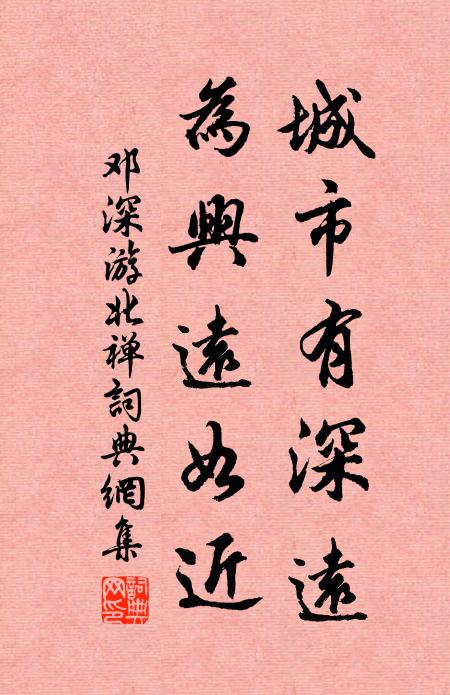 城市有深遠
為興遠如近
邓深游北禅詞典網集
詞典
网印